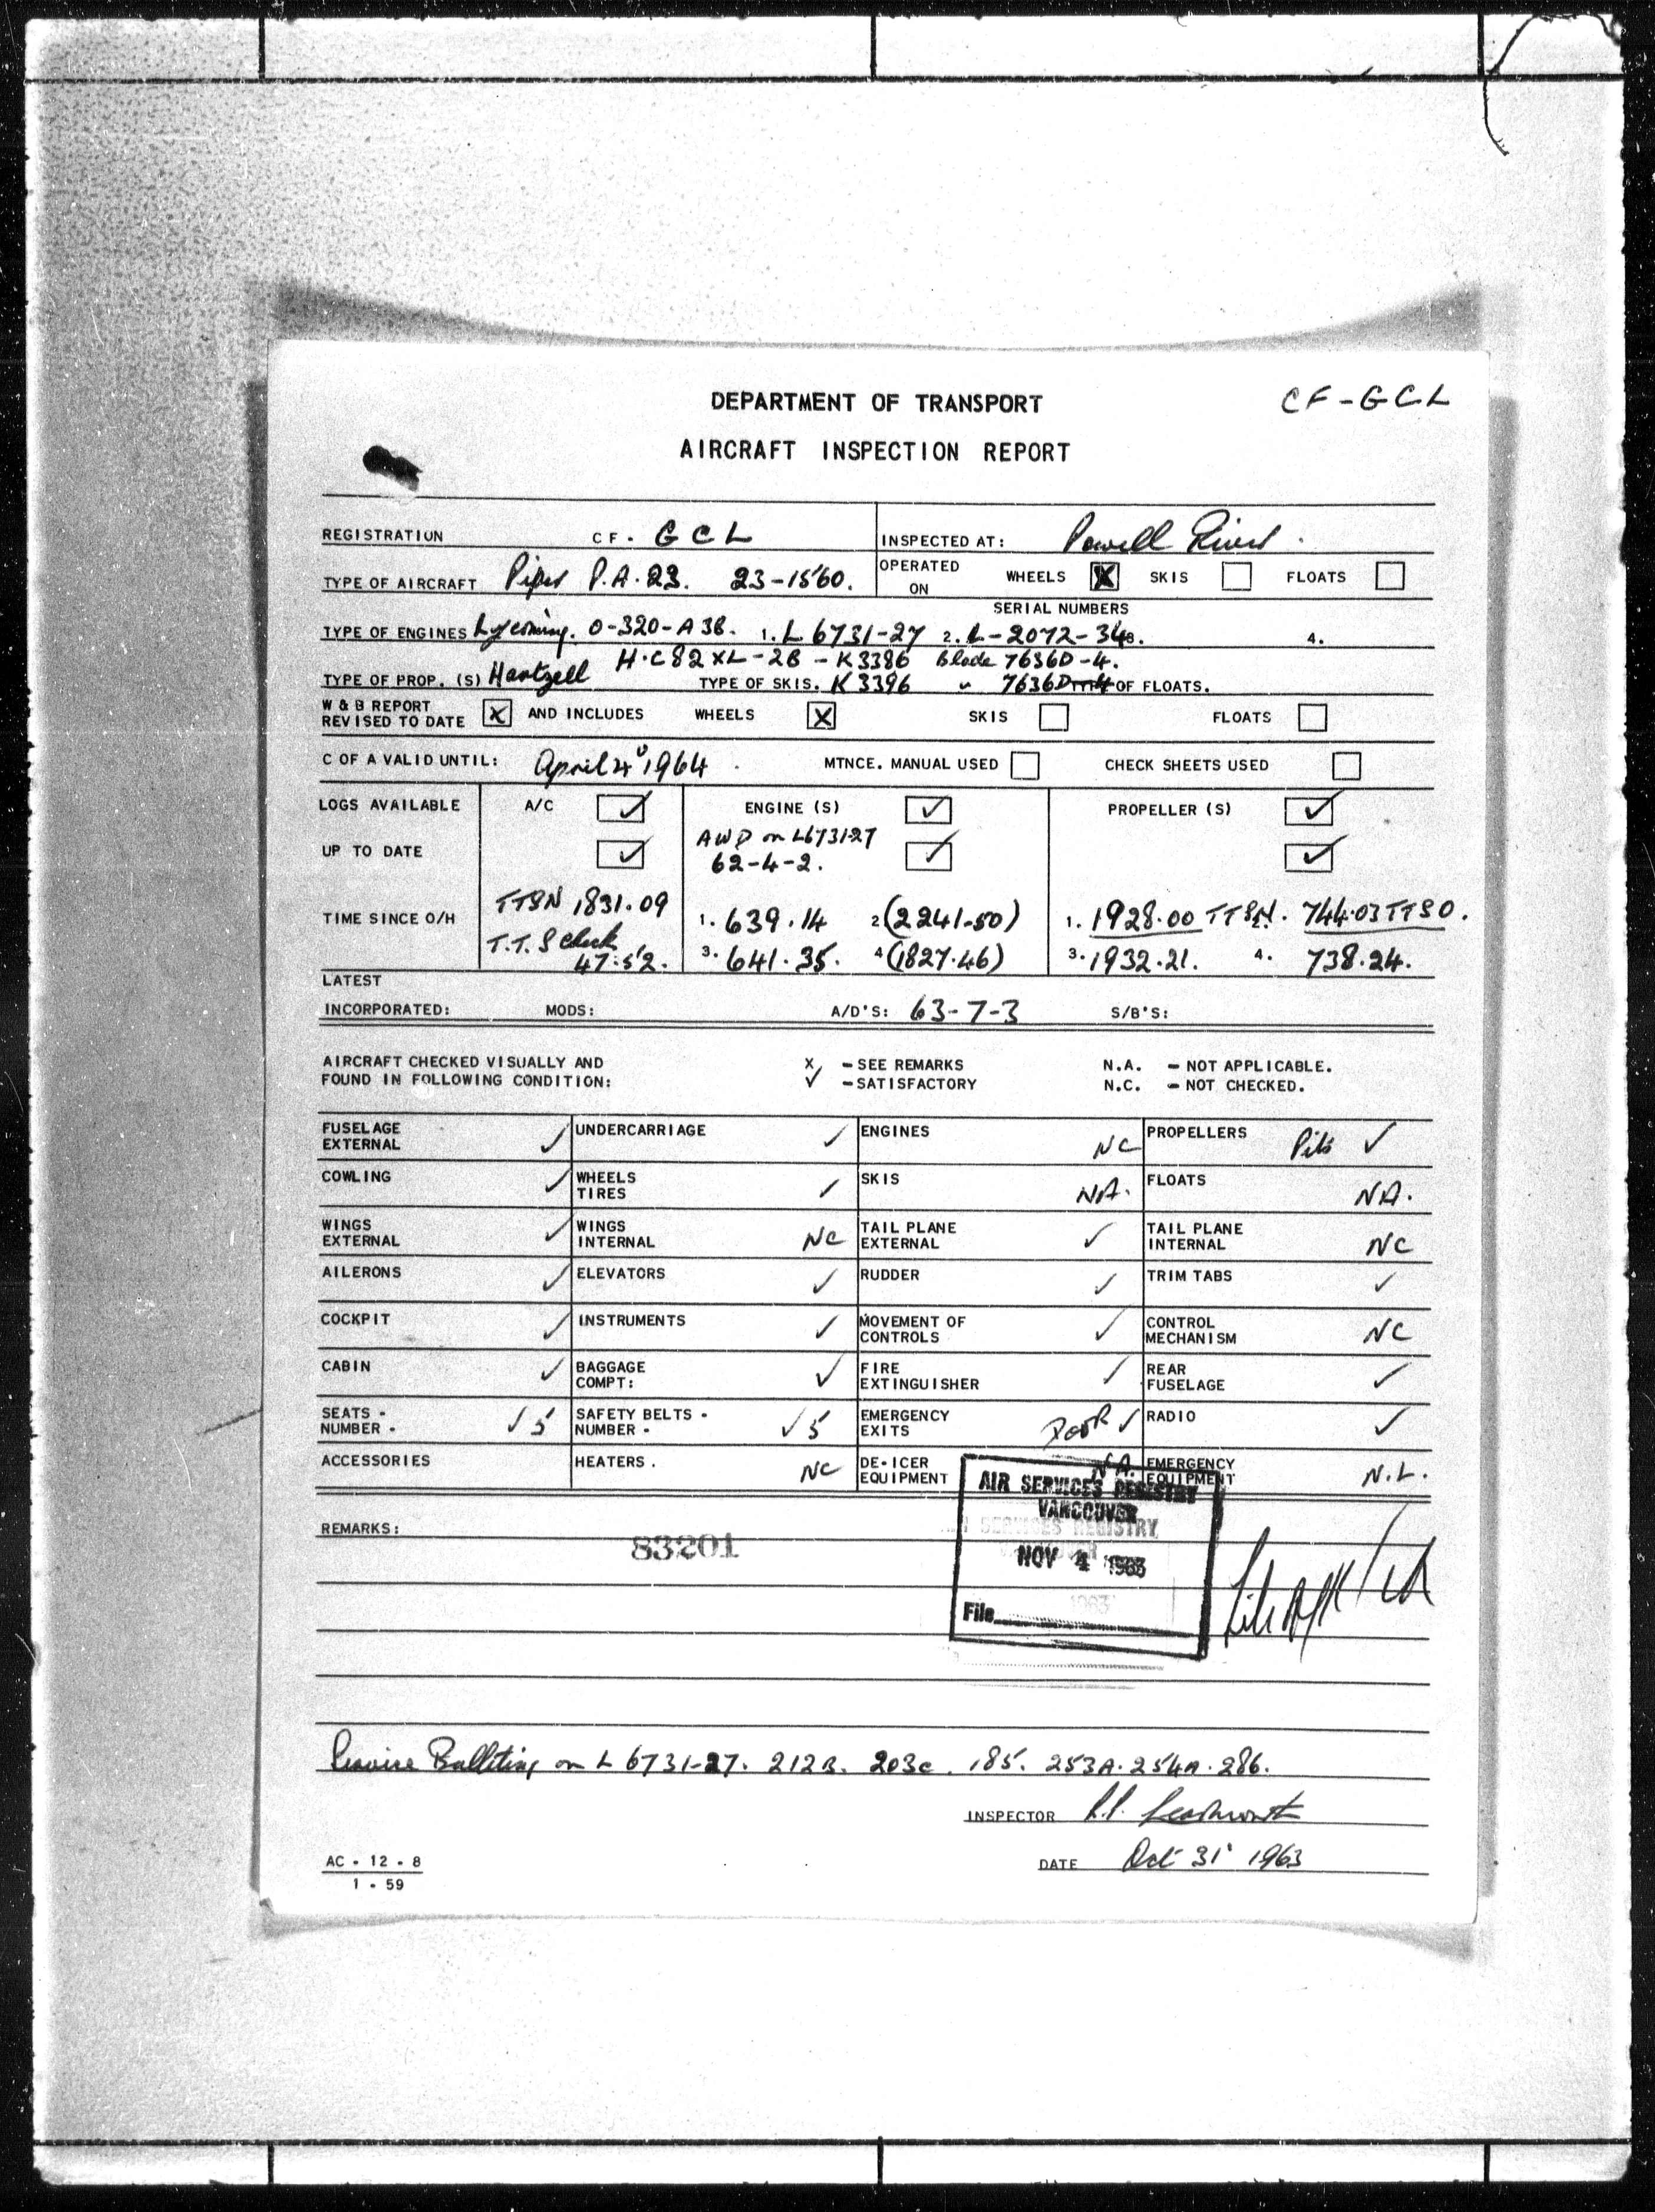 CF-GCL
DEPARTMENT OF TRANSPORT
AIRCRAFT INSPECTION REPORT
REGISTRATION CF. GCL INSPECTED AT: Powell River.
TYPE OF AIRCRAFT Piper P.A. 23. 23-1560. OPERATED ON WHEELS X SKIS FLOATS
SERIAL NUMBERS
TYPE OF ENGINES Lycoming. O-320-A3B. 1. L 6731-27 2. L-2072-34 3. 4.
H.C82XL-2B - K3386 Blade 7636D-4.
TYPE OF PROP. (S) Hartzell TYPE OF SKIS. K3396 " 7636D-4 OF FLOATS.
W & B REPORT REVISED TO DATE X AND INCLUDES WHEELS X SKIS FLOATS
C OF A VALID UNTIL: April 4 1964. MTNCE. MANUAL USED CHECK SHEETS USED
LOGS AVAILABLE A/C ✓ ENGINE (S) ✓ PROPELLER (S) ✓
AWD on L6731-27
UP TO DATE ✓ 62-4-2. ✓ ✓
TIME SINCE O/H TTSN 1831.09 1. 639.14 2 (2241-50) 1. 1928.00 TTSN. 744.03 TTSO.
T.T.S check 47:52. 3. 641.35. 4 (1827.46) 3. 1932.21. 4. 738.24.
LATEST
INCORPORATED: MODS: A/D'S: 63-7-3 S/B'S:
AIRCRAFT CHECKED VISUALLY AND X - SEE REMARKS N.A. - NOT APPLICABLE.
FOUND IN FOLLOWING CONDITION: ✓ - SATISFACTORY N.C. - NOT CHECKED.
FUSELAGE EXTERNAL ✓ UNDERCARRIAGE ✓ ENGINES NC PROPELLERS ✓
COWLING ✓ WHEELS TIRES ✓ SKIS NA. FLOATS NA.
WINGS EXTERNAL ✓ WINGS INTERNAL NC TAIL PLANE EXTERNAL ✓ TAIL PLANE INTERNAL NC
AILERONS ✓ ELEVATORS ✓ RUDDER ✓ TRIM TABS ✓
COCKPIT ✓ INSTRUMENTS ✓ MOVEMENT OF CONTROLS ✓ CONTROL MECHANISM NC
CABIN ✓ BAGGAGE COMPT: ✓ FIRE EXTINGUISHER ✓ REAR FUSELAGE ✓
SEATS - NUMBER - ✓ 5 SAFETY BELTS - NUMBER - ✓ 5 EMERGENCY EXITS DOOR ✓ RADIO ✓
ACCESSORIES HEATERS. NC DE-ICER EQUIPMENT N.A. EMERGENCY EQUIPMENT N.L.
AIR SERVICES REGISTRY
VANCOUVER
NOV 4 1963
File
REMARKS: 83201
on L 6731-27. 212B. 203C. 185. 253A. 254A. 286.
INSPECTOR
DATE Oct 31 1963
AC - 12 - 8
1 - 59